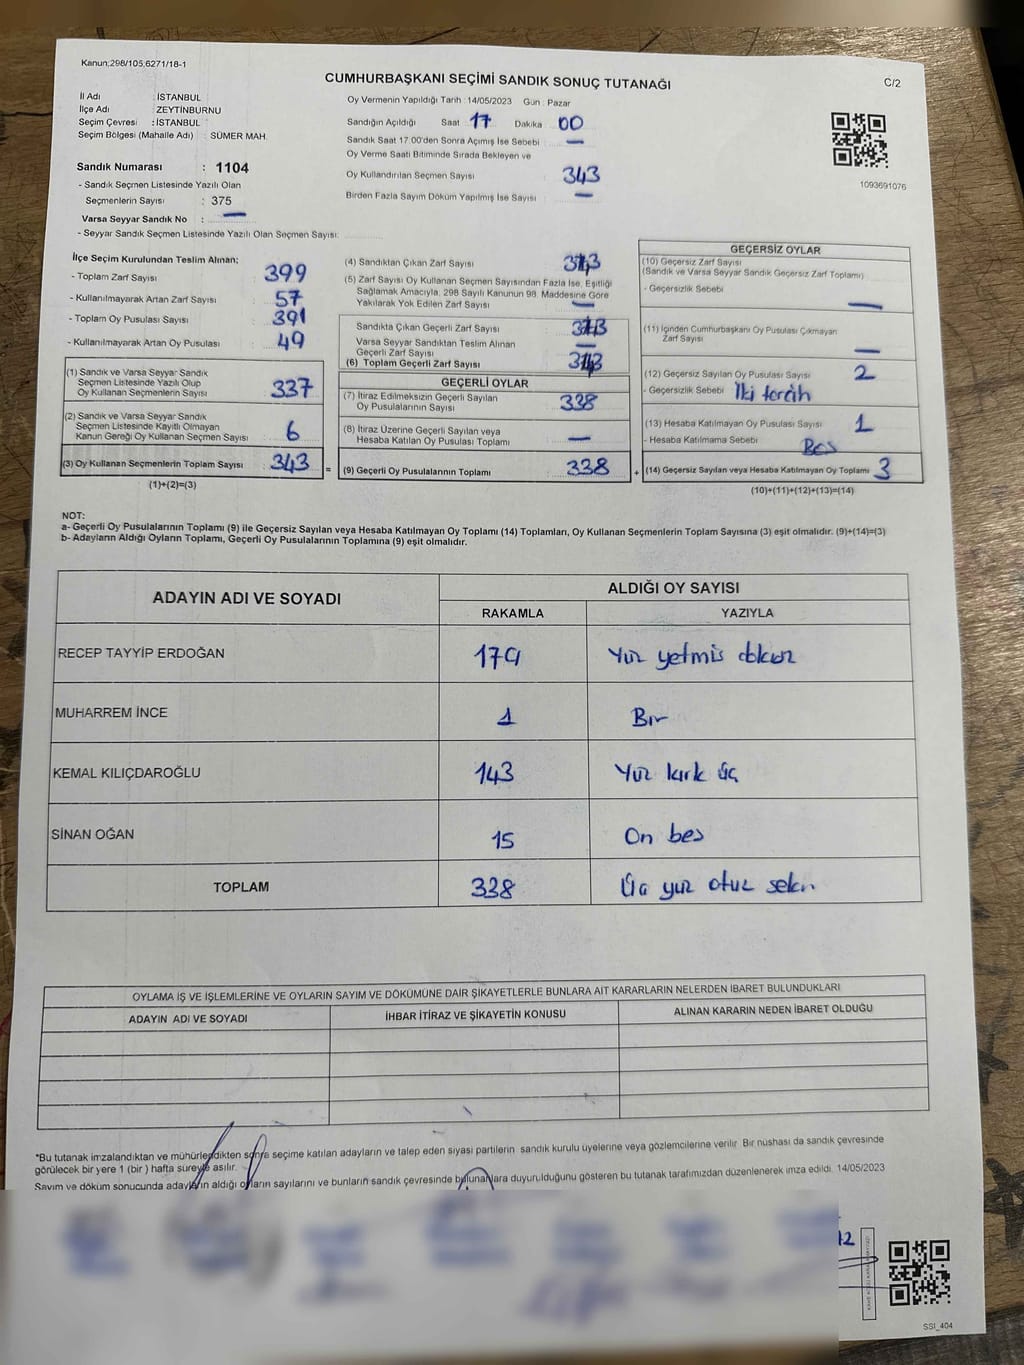 Kanun;298/105;6271/18-1
CUMHURBAŞKANI SEÇİMİ SANDIK SONUÇ TUTANAĞI
C/2
İl Adı : İSTANBUL
İlçe Adı : ZEYTİNBURNU
Seçim Çevresi : İSTANBUL
Seçim Bölgesi (Mahalle Adı) : SÜMER MAH.
Sandık Numarası : 1104
- Sandık Seçmen Listesinde Yazılı Olan
Seçmenlerin Sayısı : 375
Varsa Seyyar Sandık No : —
- Seyyar Sandık Seçmen Listesinde Yazılı Olan Seçmen Sayısı:
Oy Vermenin Yapıldığı Tarih : 14/05/2023 Gün : Pazar
Sandığın Açıldığı Saat 17 Dakika 00
Sandık Saat 17:00'den Sonra Açımış İse Sebebi —
Oy Verme Saati Bitiminde Sırada Bekleyen ve
Oy Kullandırılan Seçmen Sayısı 343
Birden Fazla Sayım Döküm Yapılmış İse Sayısı —
1093691076
İlçe Seçim Kurulundan Teslim Alınan:
- Toplam Zarf Sayısı : 399
- Kullanılmayarak Artan Zarf Sayısı : 57
- Toplam Oy Pusulası Sayısı : 391
- Kullanılmayarak Artan Oy Pusulası : 49
(1) Sandık ve Varsa Seyyar Sandık
Seçmen Listesinde Yazılı Olup
Oy Kullanan Seçmenlerin Sayısı : 337
(2) Sandık ve Varsa Seyyar Sandık
Seçmen Listesinde Kayıtlı Olmayan
Kanun Gereği Oy Kullanan Seçmen Sayısı : 6
(3) Oy Kullanan Seçmenlerin Toplam Sayısı : 343
(1)+(2)=(3)
=
(4) Sandıktan Çıkan Zarf Sayısı : 343
(5) Zarf Sayısı Oy Kullanan Seçmen Sayısından Fazla İse, Eşitliği
Sağlamak Amacıyla, 298 Sayılı Kanunun 98. Maddesine Göre
Yakılarak Yok Edilen Zarf Sayısı : —
Sandıkta Çıkan Geçerli Zarf Sayısı : 343
Varsa Seyyar Sandıktan Teslim Alınan
Geçerli Zarf Sayısı : —
(6) Toplam Geçerli Zarf Sayısı : 343
GEÇERLİ OYLAR
(7) İtiraz Edilmeksizin Geçerli Sayılan
Oy Pusulalarının Sayısı : 338
(8) İtiraz Üzerine Geçerli Sayılan veya
Hesaba Katılan Oy Pusulası Toplamı : —
(9) Geçerli Oy Pusulalarının Toplamı : 338
+
GEÇERSİZ OYLAR
(10) Geçersiz Zarf Sayısı
(Sandık ve Varsa Seyyar Sandık Geçersiz Zarf Toplamı)
- Geçersizlik Sebebi : —
(11) İçinden Cumhurbaşkanı Oy Pusulası Çıkmayan
Zarf Sayısı : —
(12) Geçersiz Sayılan Oy Pusulası Sayısı : 2
- Geçersizlik Sebebi : İki tercih
(13) Hesaba Katılmayan Oy Pusulası Sayısı : 1
- Hesaba Katılmama Sebebi : Bos
(14) Geçersiz Sayılan veya Hesaba Katılmayan Oy Toplamı : 3
(10)+(11)+(12)+(13)=(14)
NOT:
a- Geçerli Oy Pusulalarının Toplamı (9) ile Geçersiz Sayılan veya Hesaba Katılmayan Oy Toplamı (14) Toplamları, Oy Kullanan Seçmenlerin Toplam Sayısına (3) eşit olmalıdır. (9)+(14)=(3)
b- Adayların Aldığı Oyların Toplamı, Geçerli Oy Pusulalarının Toplamına (9) eşit olmalıdır.
ADAYIN ADI VE SOYADI
ALDIĞI OY SAYISI
RAKAMLA YAZIYLA
RECEP TAYYİP ERDOĞAN 179 Yuz yetmis dokuz
MUHARREM İNCE 1 Bır
KEMAL KILIÇDAROĞLU 143 Yuz kırk üç
SİNAN OĞAN 15 On bes
TOPLAM 338 Üç yuz otuz sekiz
OYLAMA İŞ VE İŞLEMLERİNE VE OYLARIN SAYIM VE DÖKÜMÜNE DAİR ŞİKAYETLERLE BUNLARA AİT KARARLARIN NELERDEN İBARET BULUNDUKLARI
ADAYIN ADI VE SOYADI İHBAR İTİRAZ VE ŞİKAYETİN KONUSU ALINAN KARARIN NEDEN İBARET OLDUĞU
*Bu tutanak imzalandıktan ve mühürlendikten sonra seçime katılan adayların ve talep eden siyasi partilerin sandık kurulu üyelerine veya gözlemcilerine verilir. Bir nüshası da sandık çevresinde
görülecek bir yere 1 (bir ) hafta süreyle asılır.
Sayım ve döküm sonucunda adayların aldığı oyların sayılarını ve bunların sandık çevresinde bulunanlara duyurulduğunu gösteren bu tutanak tarafımızdan düzenlenerek imza edildi. 14/05/2023
SSI_404